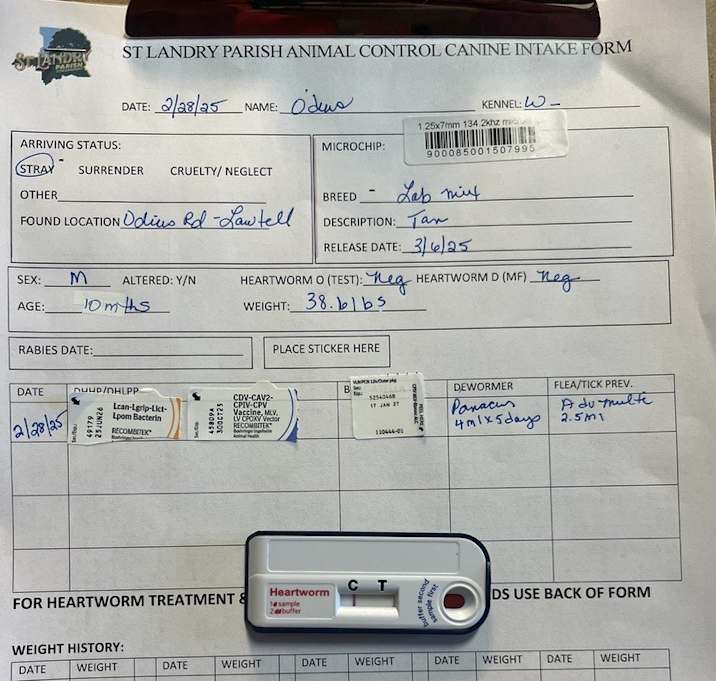 ST LANDRY PARISH
ST LANDRY PARISH ANIMAL CONTROL CANINE INTAKE FORM
DATE: 2/28/25 NAME: Odius KENNEL: W-
ARRIVING STATUS:
STRAY - SURRENDER CRUELTY/ NEGLECT
OTHER
FOUND LOCATION Odius Rd - Lawtell
MICROCHIP:
1.25x7mm 134.2khz
900085001507995
BREED - Lab mix
DESCRIPTION: Tan
RELEASE DATE: 3/6/25
SEX: M ALTERED: Y/N HEARTWORM O (TEST): Neg HEARTWORM D (MF) Neg
AGE: 10 mths WEIGHT: 38.6 lbs
RABIES DATE: PLACE STICKER HERE
DATE DHHP/DHLPP B DEWORMER FLEA/TICK PREV.
2/28/25
49179
25JUN26
Lcan-Lgrip-Lict-
Lpom Bacterin
RECOMBITEK
Boehringer Ingelheim
Animal Health
30OCT25
CDV-CAV2-
CPIV-CPV
Vaccine, MLV,
LV CPOXV Vector
RECOMBITEK
Boehringer Ingelheim
Animal Health
5254046B
17 JAN 27
Panacur
4ml x 5 days
Advmulti
2.5ml
Heartworm
1 sample
2 buffer
C T
buffer second
sample first
FOR HEARTWORM TREATMENT & DS USE BACK OF FORM
WEIGHT HISTORY:
DATE WEIGHT DATE WEIGHT DATE WEIGHT DATE WEIGHT DATE WEIGHT